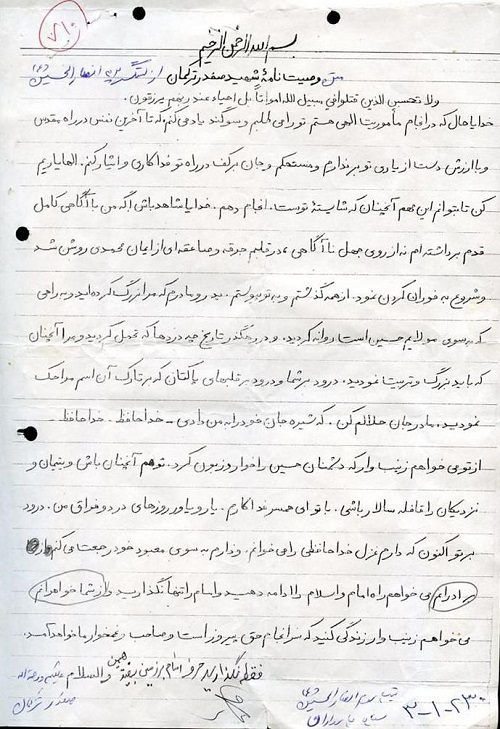 ۷۱۰
بسم الله الرحمن الرحیم
متن وصیت نامهٔ شهید صفدر ترکمان از لشگر ۳۲ انصارالحسین (ع)
ولا تحسبن الذین قتلوا فی سبیل الله امواتاً بل احیاء عند ربهم یرزقون.
خدایا حال که در انجام مأموریت الهی هستم تو را می طلبم و سوگند یاد می کنم که تا آخرین نفس در راه مقدس
و با ارزش دست از یاری تو برندارم و مستحکم و جان بر کف در راه تو فداکاری و ایثار کنم. الها یاریم
کن تا بتوانم این مهم آنچنان که شایستهٔ توست. انجام دهم. خدایا شاهد باش اگه من با آگاهی کامل
قدم برداشته ام نه از روی جهل نا آگاهی، در قلبم جرقه و صاعقه ای از ایمان محمدی روشن شد
و شروع به فوران کردن نمود. از همه گذشتم و به تو پیوستم. پدر و مادرم که مرا بزرگ کرده اید و به راهی
که به سوی مولایم حسین است روانه کردید. و در رهگذر تاریخ چه دردها که تحمل کردید و مرا آنچنان
که باید بزرگ و تربیت نمودید. درود بر شما و درود بر قلبهای پاکتان که بر تارک آن اسم مرا حک
نمودید. مادر جان حلالم کن. که شیره جان خود را به من دادی - خداحافظ. خداحافظ
از تو می خواهم زینب وار که دشمنان حسین را خوار و زبون کرد. تو هم آنچنان باش و یتیمان و
نزدیکان را قافله سالار باشی. با تو ای همسر فداکارم. یار و یاور روزهای درد و فراق من. درود
بر تو اکنون که دارم غزل خداحافظی را می خوانم. و دارم به سوی معبود خود رجعت می کنم
برادرانم می خواهم راه امام و اسلام را ادامه دهید و امام را تنها نگذارید و از شما خواهرانم
می خواهم زینب وار زندگی کنید که سرانجام حق پیروز است و صاحب و غمخوار ما خواهد آمد.
فقط نگذارید حرف امام بر زمین بیفتد همین والسلام علیکم و رحمة الله
صفدر ترکمان
۳-۱-۲۳۰